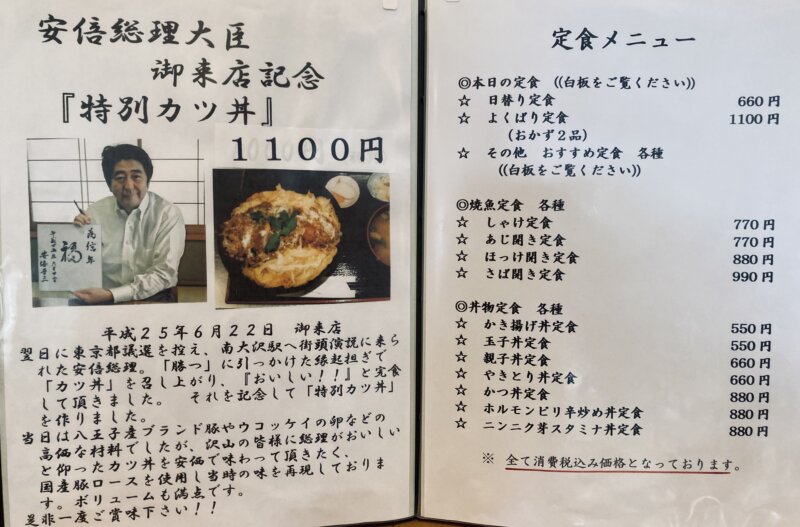 安倍総理大臣
御来店記念
『特別カツ丼』
1100円
為信年
福
安倍晋三
平成25年6月22日 御来店
翌日に東京都議選を控え、南大沢駅へ街頭演説に来ら
れた安倍総理。「勝つ」に引っかけた縁起担ぎで
「カツ丼」を召し上がり、『おいしい!!』と完食
して頂きました。 それを記念して「特別カツ丼」
を作りました。
当日は八王子産ブランド豚やウコッケイの卵などの
高価な材料でしたが、沢山の皆様に総理がおいしい
と仰ったカツ丼を安価で味わって頂きたく、
国産豚ロースを使用し当時の味を再現しておりま
す。ボリュームも満点です。
是非一度ご賞味下さい!!
定食メニュー
◎本日の定食 ((白板をご覧ください))
☆ 日替り定食 660円
☆ よくばり定食 1100円
(おかず2品)
☆ その他 おすすめ定食 各種
((白板をご覧ください))
◎焼魚定食 各種
☆ しゃけ定食 770円
☆ あじ開き定食 770円
☆ ほっけ開き定食 880円
☆ さば開き定食 990円
◎丼物定食 各種
☆ かき揚げ丼定食 550円
☆ 玉子丼定食 550円
☆ 親子丼定食 660円
☆ やきとり丼定食 660円
☆ かつ丼定食 880円
☆ ホルモンピリ辛炒め丼定食 880円
☆ ニンニク芽スタミナ丼定食 880円
※ 全て消費税込み価格となっております。